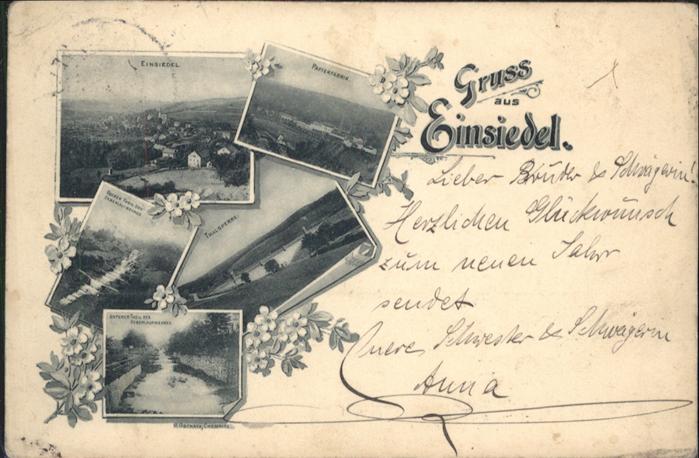 EINSIEDEL
PAPIERFABRIK
Gruss
aus
Einsiedel.
OBERER THEIL DES
UEBERLAUFWEHRES
THALSPERRE
UNTERER THEIL DES
UEBERLAUFWEHRES
CHEMNITZ
Lieber Bruder & Schwägerin!
Herzlichen Glückwunsch
zum neuen Jahr
sendet
Euere Schwester & Schwägerin
Anna